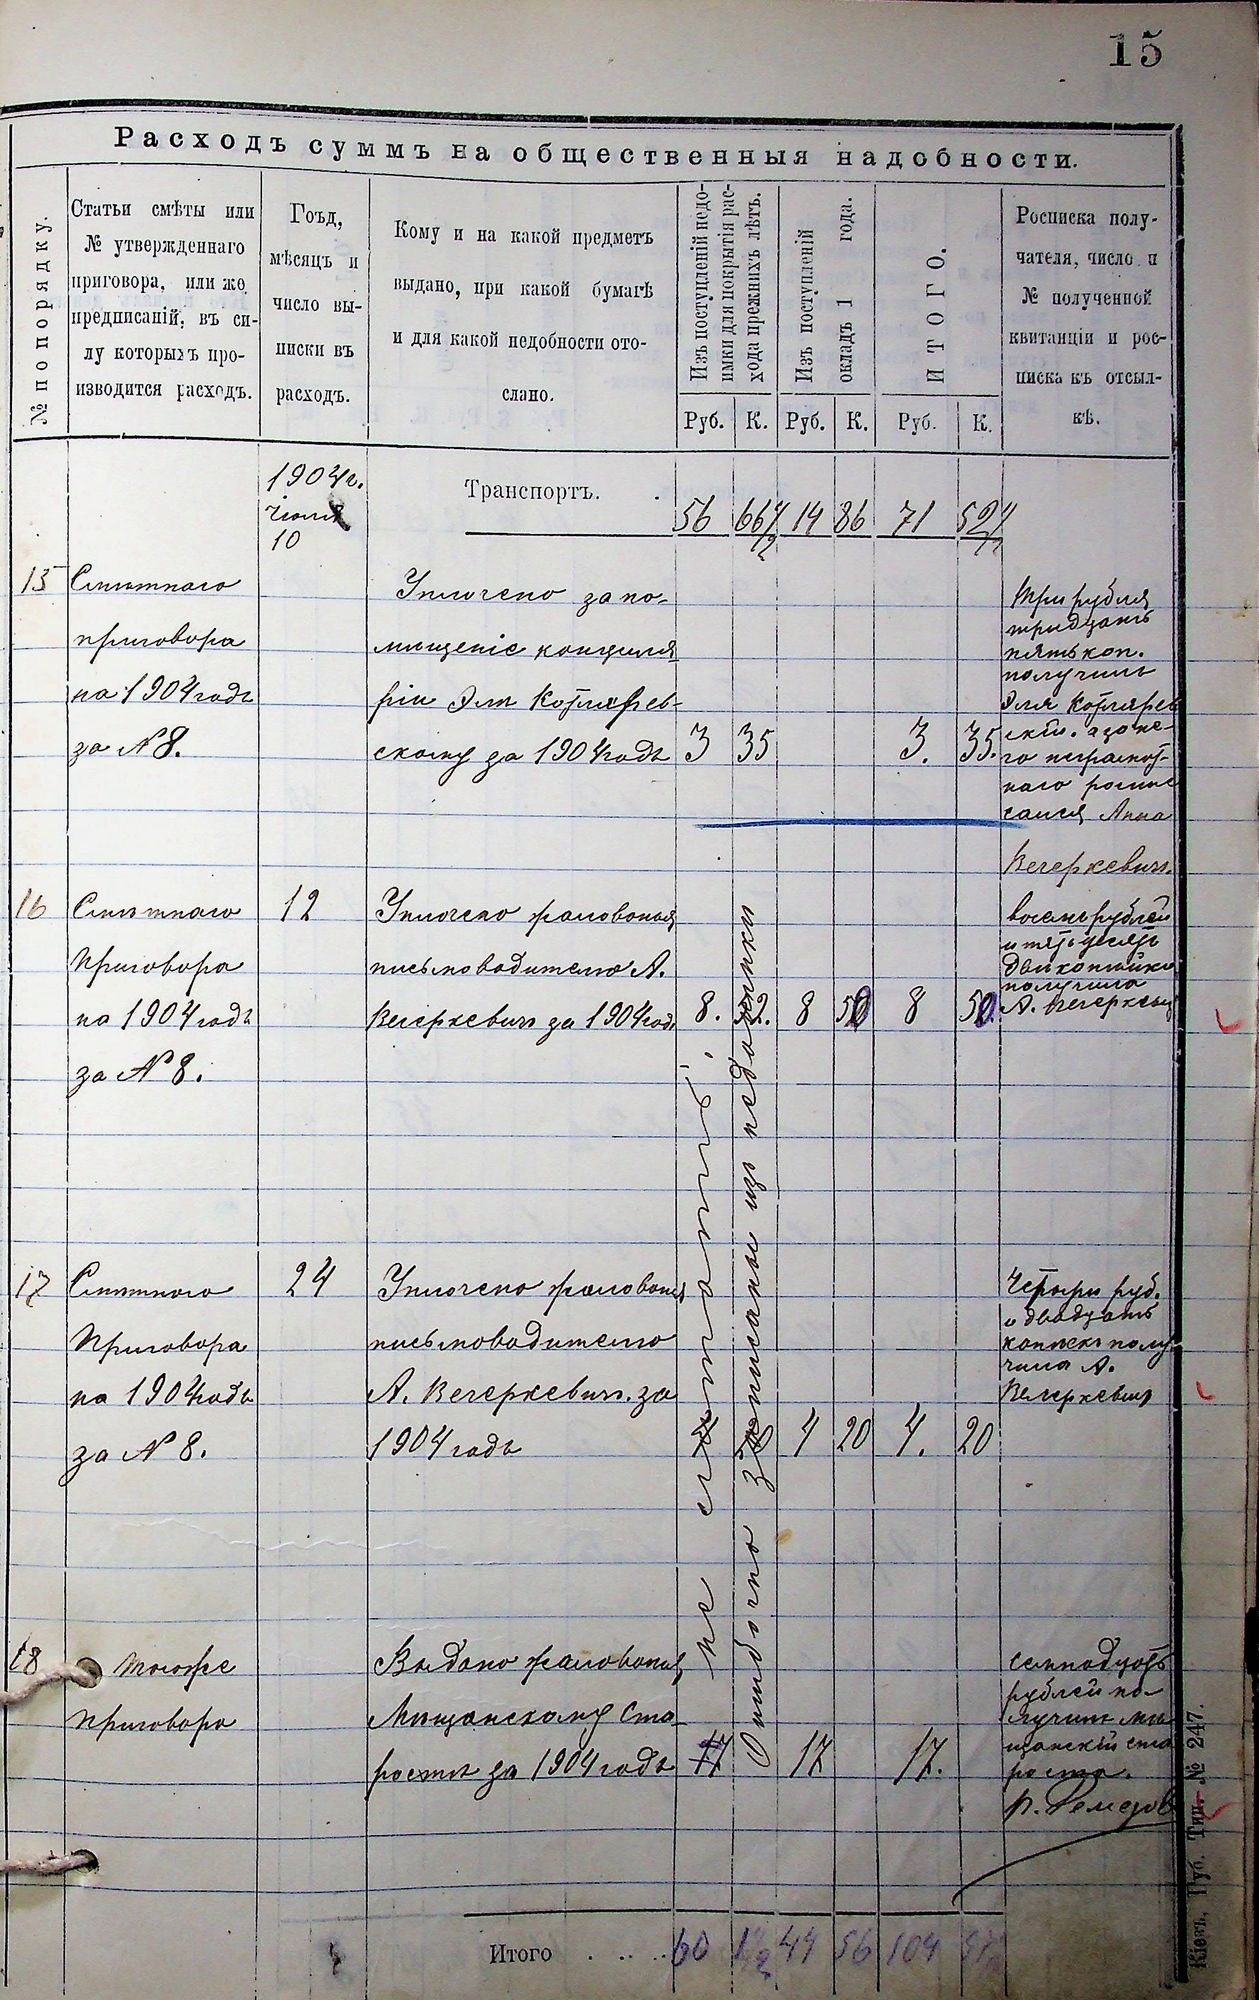 15
Расходъ суммъ на общественныя надобности.
№ по порядку.
Статьи смѣты или
№ утвержденнаго
приговора, или же
предписаній, въ си-
лу которыхъ про-
изводится расходъ.
Гоъд,
мѣсяцъ и
число вы-
писки въ
расходъ.
Кому и на какой предметъ
выдано, при какой бумагѣ
и для какой недобности ото-
слано.
Изъ поступленій недо-
имки для покрытія рас-
хода прежнихъ лѣтъ.
Изъ поступленій
окладъ 1 года.
ИТОГО.
Руб. К. Руб. К. Руб. К.
Росписка полу-
чателя, число и
№ полученной
квитанціи и рос-
писка къ отсыл-
кѣ.
1904г.
Іюля
10
Транспортъ. 56 66 1/2 14 86 71 52 1/2
15 Смѣтнаго
приговора
на 1904 годъ
за № 8.
Уплочено за по-
мѣщеніе канцеля-
ріи Эли Котлярев-
скому за 1904 годъ 3 35 3. 35.
Три рубля
тридцать
пять коп.
получилъ
Эля Котлярев
скій. а за не-
го неграмот-
наго роспи
сался Анна
Вечеркевичъ.
16 Смѣтнаго
Приговора
на 1904 годъ
за № 8.
12
Уплочено жалованья
письмоводителю А.
Вечеркевичъ за 1904 годъ 8. 52. 8 50 8 50.
восемь рублей
и пятьдесятъ
двѣ копѣйки
получила
А. Вечеркевич
17 Смѣтного
Приговора
на 1904 годъ
за № 8.
24
Уплочено жалованья
письмоводителю
А. Вечеркевичъ. за
1904 годъ 4 20 4. 20
Четыри руб.
и двадцать
копѣекъ полу
чила А.
Вечеркевичъ
не считать!
Ошибочно записаны изъ недоимки
18 тогоже
приговора
Выдано жалованья
Мѣщанскому Ста-
ростѣ за 1904 годъ 17 17 17.
семнадцать
рублей по-
лучилъ мѣ
щанскій ста
роста.
Итого 60 1 1/2 44 56 104 57 1/2
Кіевъ, Губ. Тип. № 247.